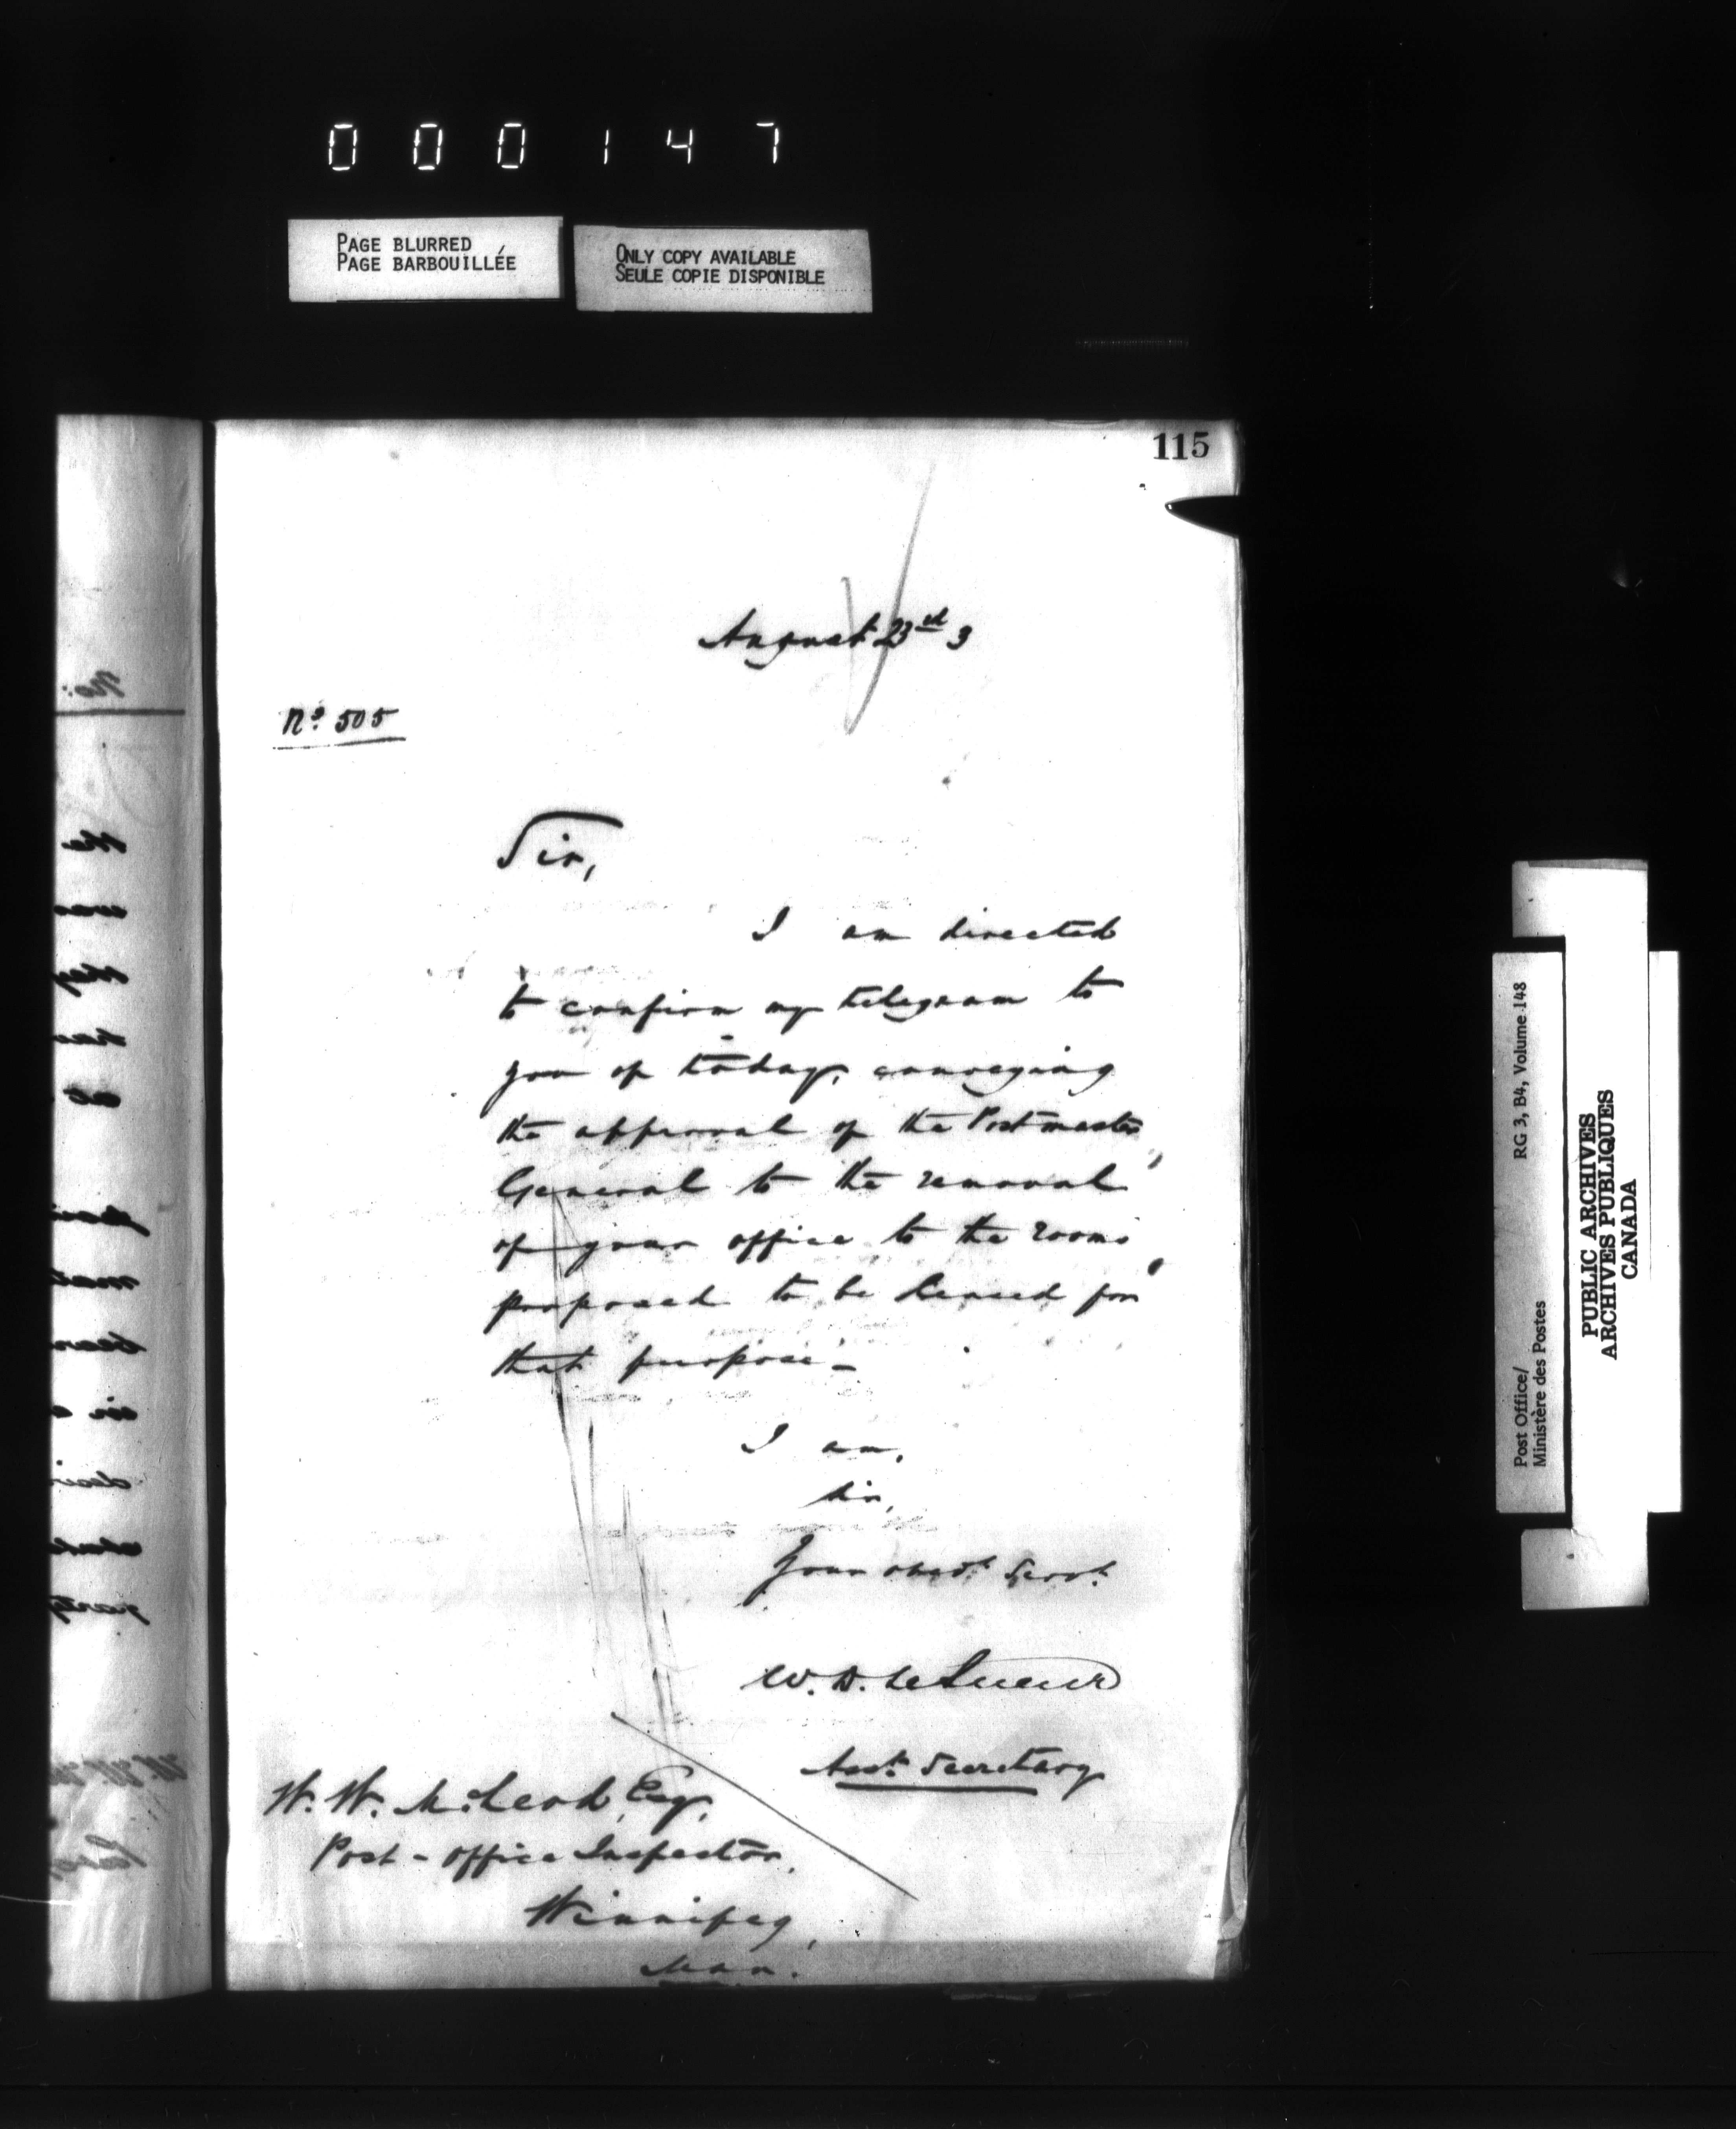 000147
PAGE BLURRED
PAGE BARBOUILLÉE
ONLY COPY AVAILABLE
SEULE COPIE DISPONIBLE
115
August 23rd 3
No. 505
Sir,
I am directed
to confirm my telegram to
you of today, conveying
the approval of the Postmaster
General to the removal
of your office to the rooms
proposed to be leased for
that purpose –
I am,
Sir,
Your obedt. Servt.
W. D. LeSueur
Asst. Secretary
W. W. McLeod, Esq,
Post-office Inspector,
Winnipeg,
Man.
Post Office/
Ministère des Postes
RG 3, B4, Volume 148
PUBLIC ARCHIVES
ARCHIVES PUBLIQUES
CANADA